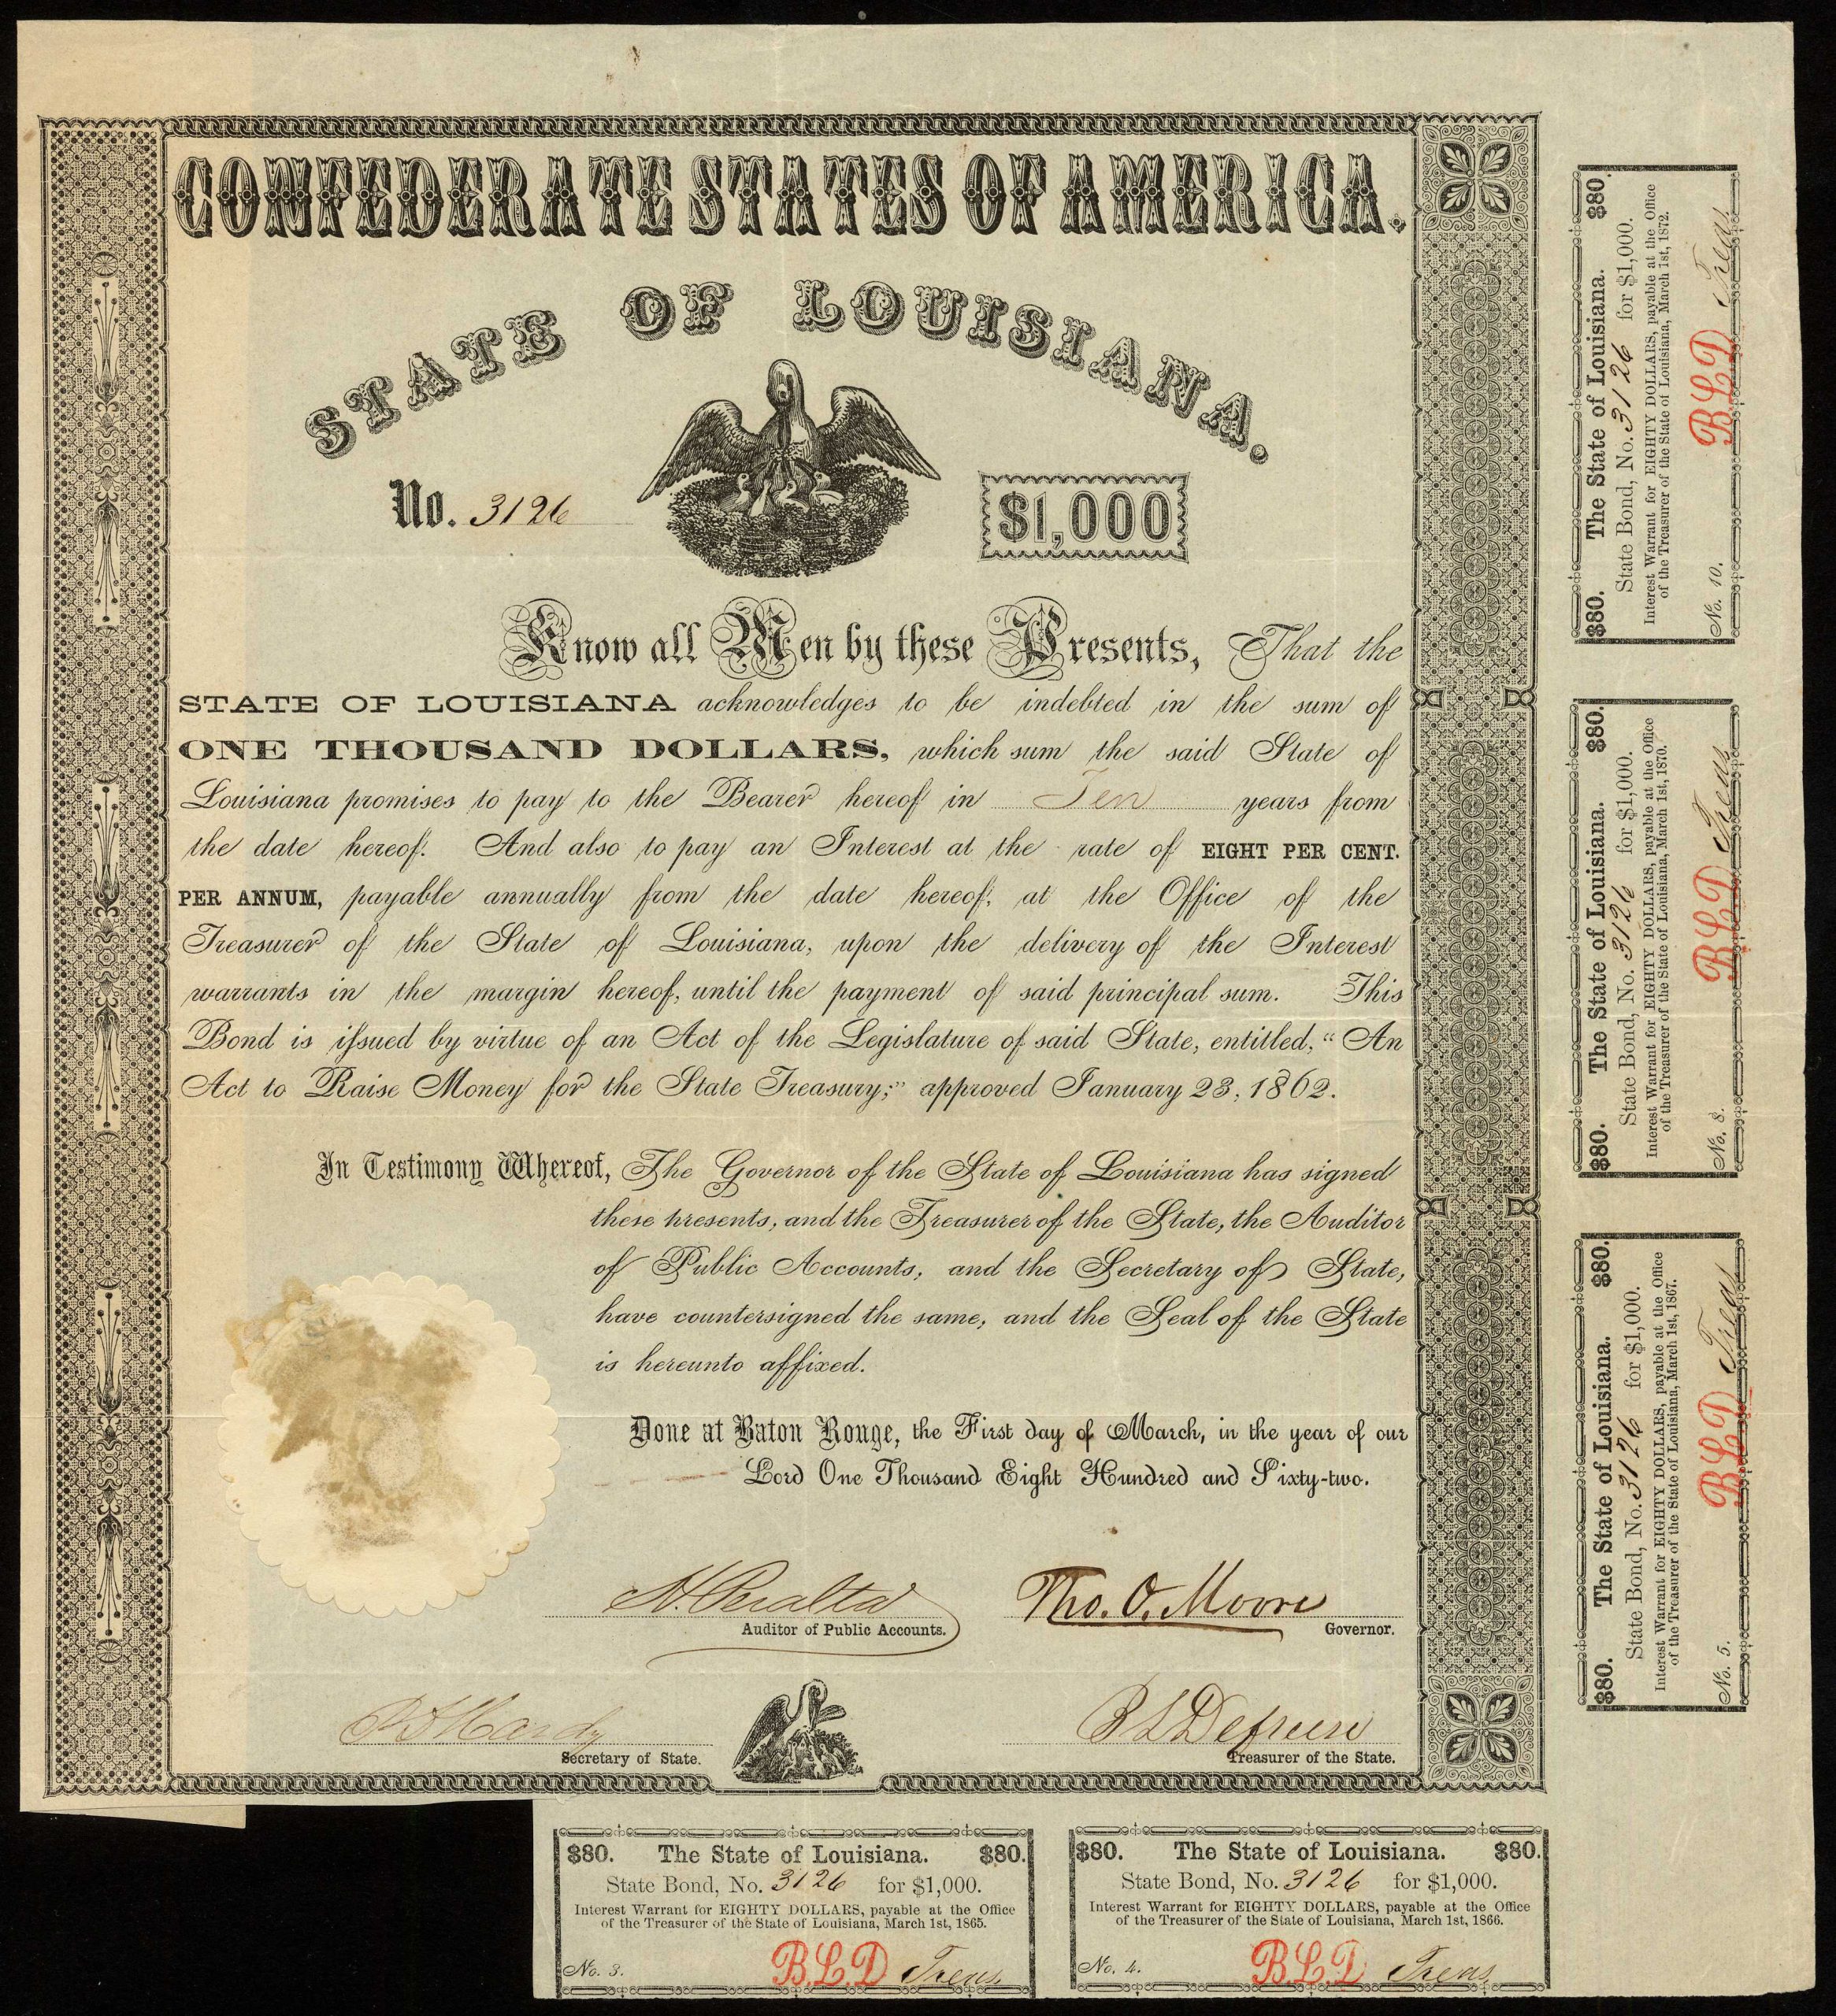 CONFEDERATE STATES OF AMERICA.
STATE OF LOUISIANA.
No. 3126
$1,000
Know all Men by these Presents, That the
STATE OF LOUISIANA acknowledges to be indebted in the sum of
ONE THOUSAND DOLLARS, which sum the said State of
Louisiana promises to pay to the Bearer hereof in Ten years from
the date hereof. And also to pay an Interest at the rate of EIGHT PER CENT.
PER ANNUM, payable annually from the date hereof, at the Office of the
Treasurer of the State of Louisiana, upon the delivery of the Interest
warrants in the margin hereof, until the payment of said principal sum. This
Bond is issued by virtue of an Act of the Legislature of said State, entitled, "An
Act to Raise Money for the State Treasury;" approved January 23, 1862.
In Testimony Whereof, The Governor of the State of Louisiana has signed
these presents, and the Treasurer of the State, the Auditor
of Public Accounts, and the Secretary of State,
have countersigned the same, and the Seal of the State
is hereunto affixed.
Done at Baton Rouge, the First day of March, in the year of our
Lord One Thousand Eight Hundred and Sixty-two.
H. Peralta
Auditor of Public Accounts.
Tho. O. Moore
Governor.
Hardy
Secretary of State.
B L Defreese
Treasurer of the State.
$80. The State of Louisiana. $80.
State Bond, No. 3126 for $1,000.
Interest Warrant for EIGHTY DOLLARS, payable at the Office
of the Treasurer of the State of Louisiana, March 1st, 1872.
No. 10. B.L.D Treas.
$80. The State of Louisiana. $80.
State Bond, No. 3126 for $1,000.
Interest Warrant for EIGHTY DOLLARS, payable at the Office
of the Treasurer of the State of Louisiana, March 1st, 1870.
No. 8. B.L.D Treas.
$80. The State of Louisiana. $80.
State Bond, No. 3126 for $1,000.
Interest Warrant for EIGHTY DOLLARS, payable at the Office
of the Treasurer of the State of Louisiana, March 1st, 1867.
No. 5. B.L.D Treas.
$80. The State of Louisiana. $80.
State Bond, No. 3126 for $1,000.
Interest Warrant for EIGHTY DOLLARS, payable at the Office
of the Treasurer of the State of Louisiana, March 1st, 1865.
No. 3. B.L.D Treas.
$80. The State of Louisiana. $80.
State Bond, No. 3126 for $1,000.
Interest Warrant for EIGHTY DOLLARS, payable at the Office
of the Treasurer of the State of Louisiana, March 1st, 1866.
No. 4. B.L.D Treas.